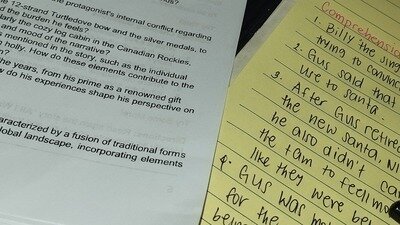 the protagonist's internal conflict regarding
e 12-strand Turtledove bow and the silver medals, to
d the burden he feels?
larly the cozy log cabin in the Canadian Rockies,
nd mood of the narrative?
s mentioned in the story, such as the individual
holly. How do these elements contribute to the
n?
he years, from his prime as a renowned gift
w do his experiences shape his perspective on
aracterized by a fusion of traditional forms
lobal landscape, incorporating elements
Comprehensio
1. Billy the Jing
trying to convinc
2. Gus said that
ure to santa.
3. After Gus retired
the new santa, Ni
he also didn't ca
he 1 am to feel mo
like they were be
4. Gus was
for the
being